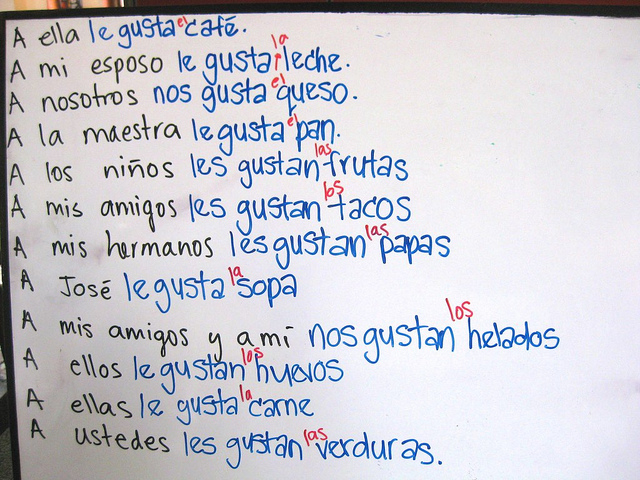 A ella le gusta el café.
A mi esposo le gusta la leche.
A nosotros nos gusta el queso.
A la maestra le gusta el pan.
A los niños les gustan las frutas
A mis amigos les gustan los tacos
A mis hermanos les gustan las papas
A José le gusta la sopa
A mis amigos y a mí nos gustan los helados
A ellos le gustan los huevos
A ellas le gusta la carne
A ustedes les gustan las verduras.